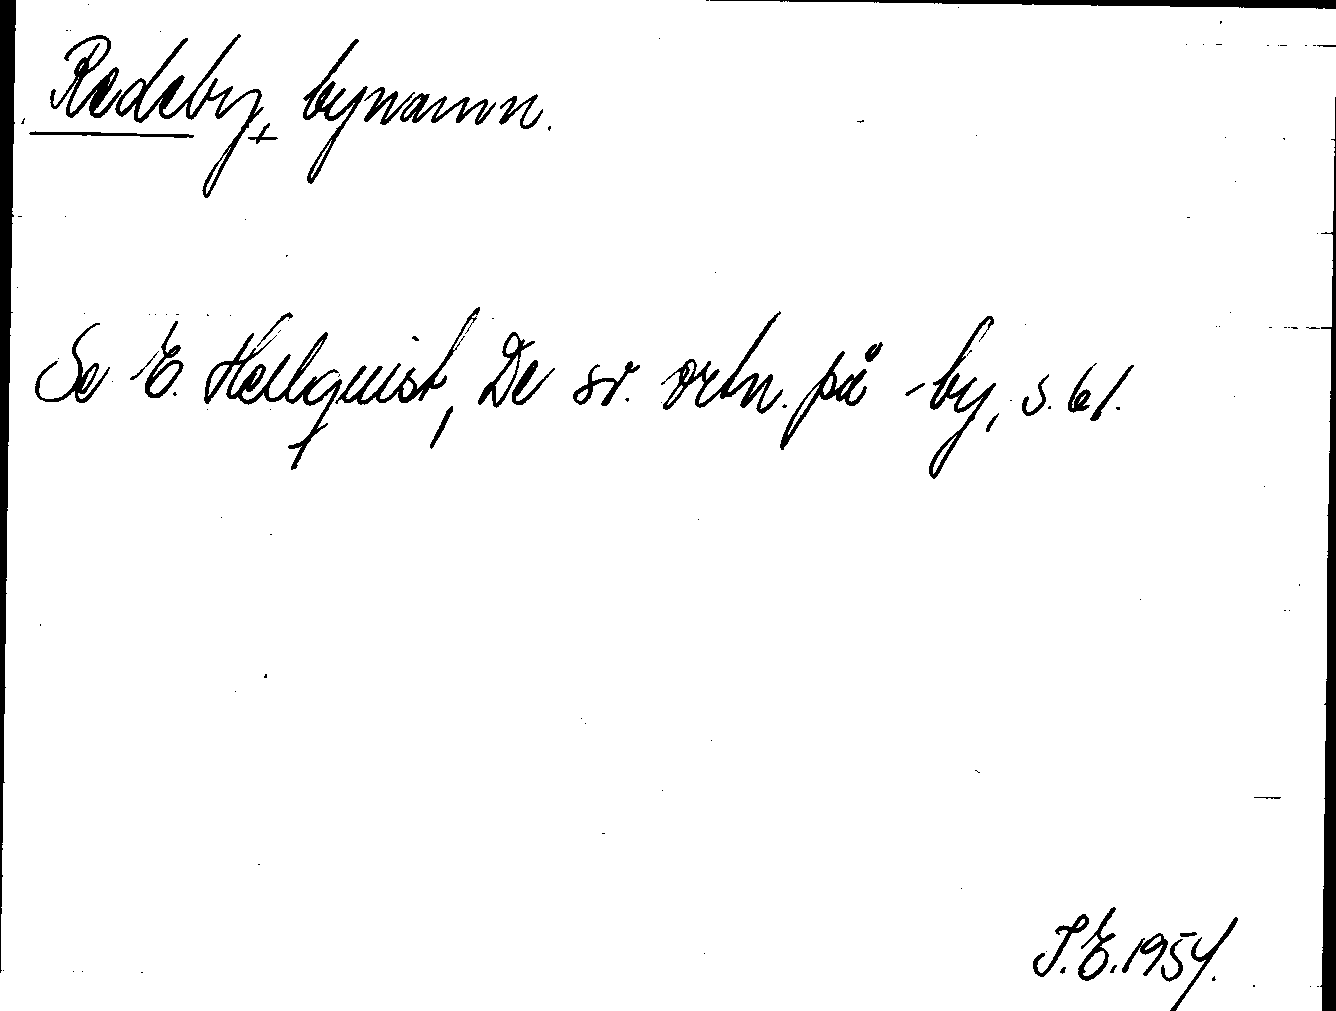 Redeby, bynamn.
Se E. Hellquist, De sv. ortn. på -by, s. 61.
S.E. 1954.